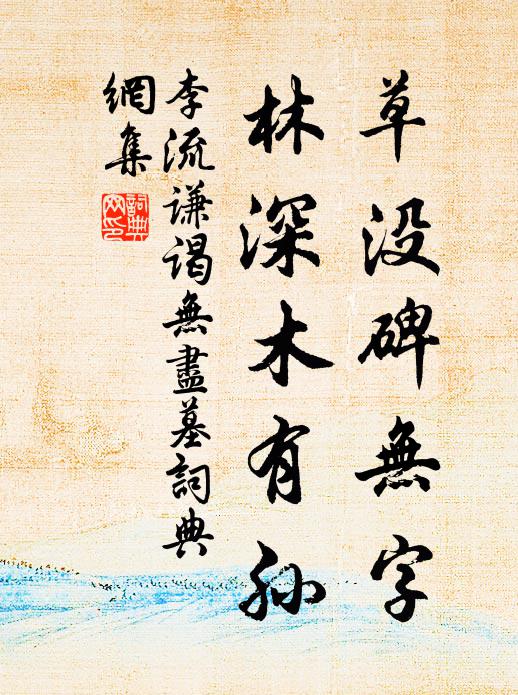 草没碑無字
林深木有孙
李流谦谒無盡墓詞典
網集
詞典网印